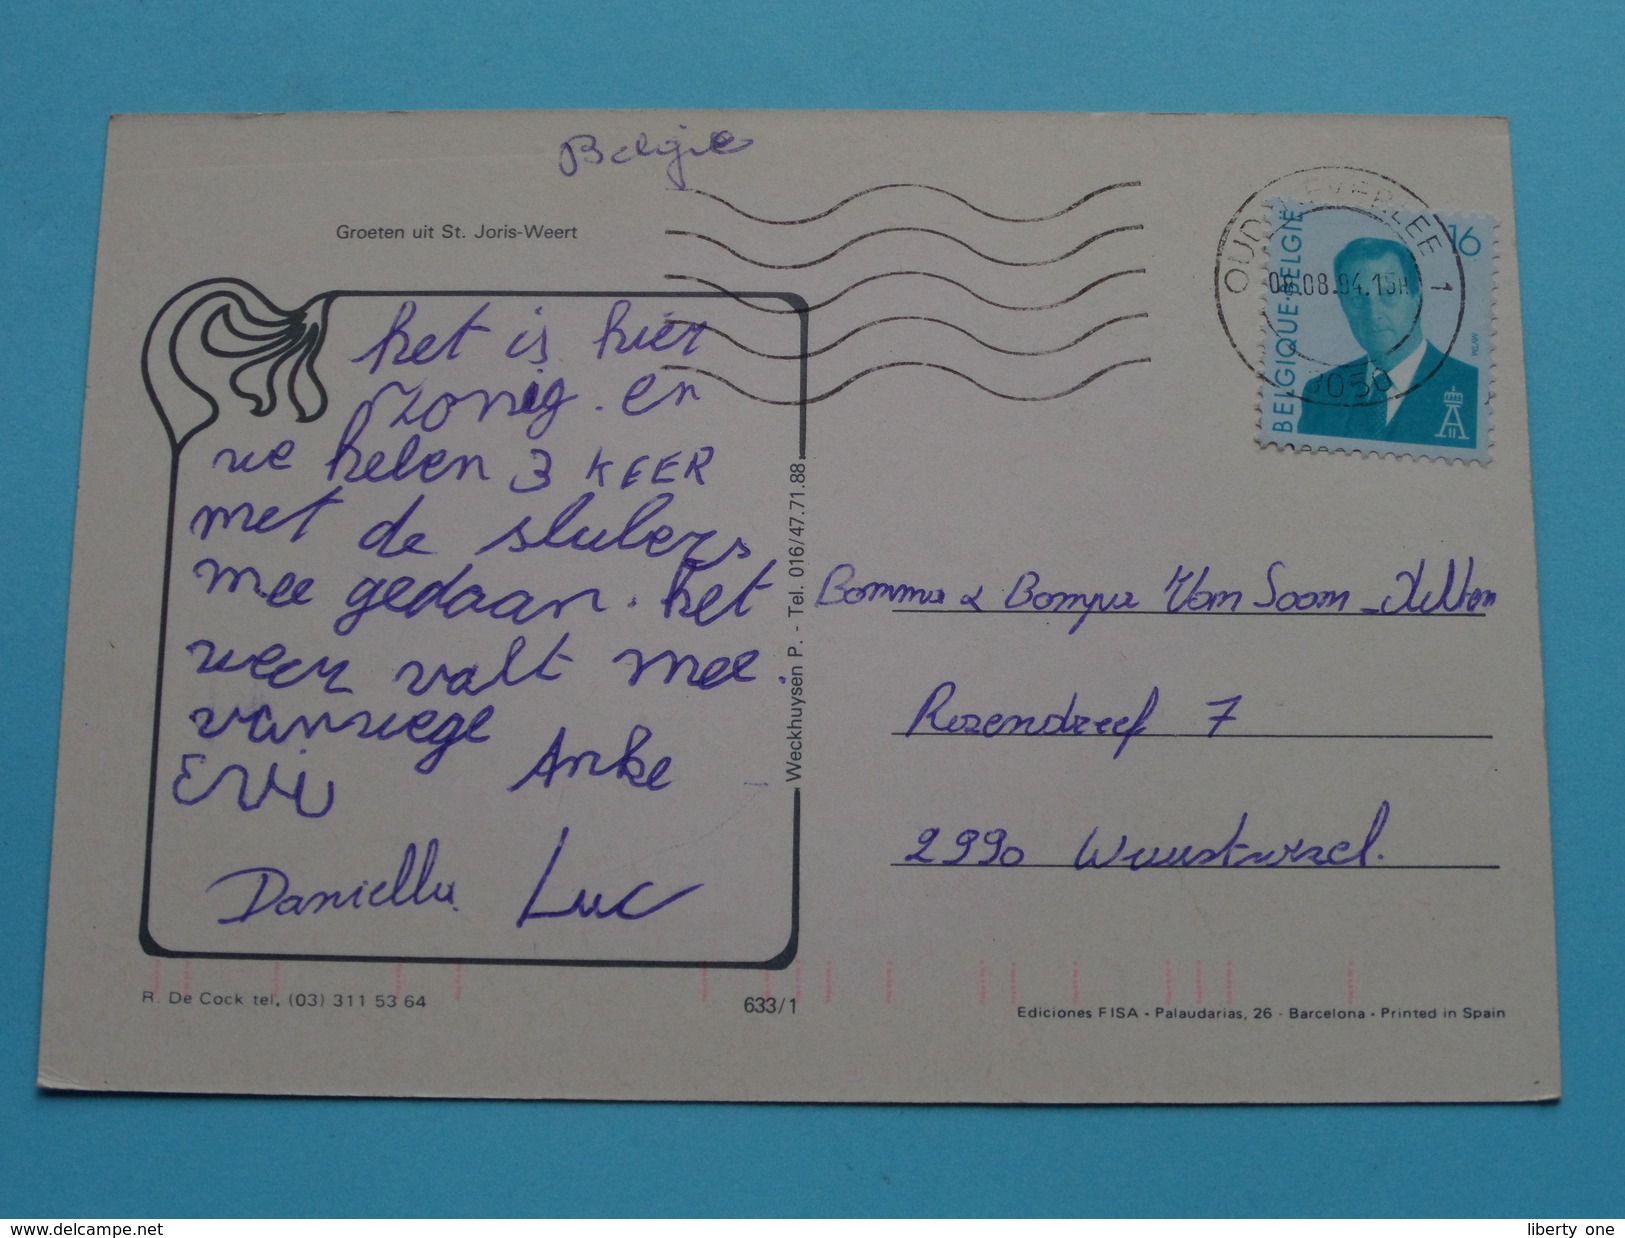 België
Groeten uit St. Joris-Weert
het is hier
zonig. en
we heben 3 KEER
met de slubers
mee gedaan. het
weer valt mee.
vanwege
EVI Anke
Daniella Luc
Weckhuysen P. - Tel. 016/47.71.88
OUD-HEVERLEE 1
08.08.94.15H
3050
BELGIQUE-BELGIË
16
MVTM
Bomma & Bompa Van Soom -
Rozendreef 7
2990 Wuustwezel.
R. De Cock tel. (03) 311 53 64
633/1
Ediciones FISA - Palaudarias, 26 - Barcelona - Printed in Spain
www.delcampe.net
liberty one